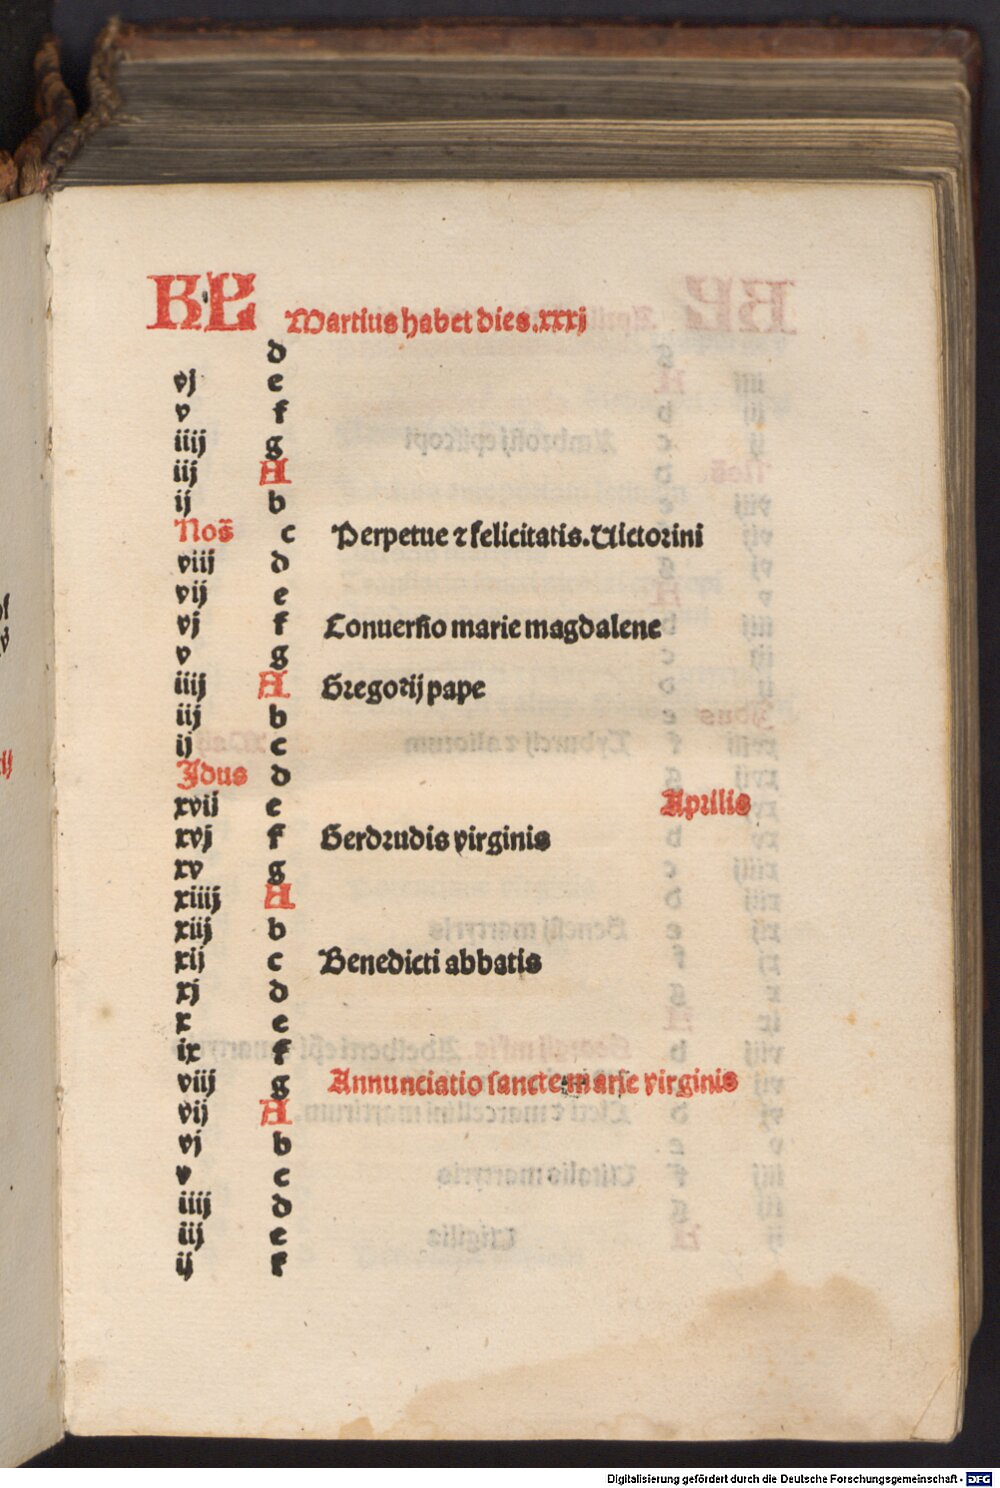 KL Martius habet dies.xxxj
d
vj e
v f
iiij g
iij A
ij b
Noñ c Perpetue ⁊ felicitatis.Uictorini
viij d
vij e
vj f Conuersio marie magdalene
v g
iiij A Gregorij pape
iij b
ij c
Jdus d
xvij e Aprilis
xvj f Gerdrudis virginis
xv g
xiiij A
xiij b
xij c Benedicti abbatis
xj d
x e
ix f
viij g Annunciatio sancte marie virginis
vij A
vj b
v c
iiij d
iij e
ij f
Digitalisierung gefördert durch die Deutsche Forschungsgemeinschaft - DFG